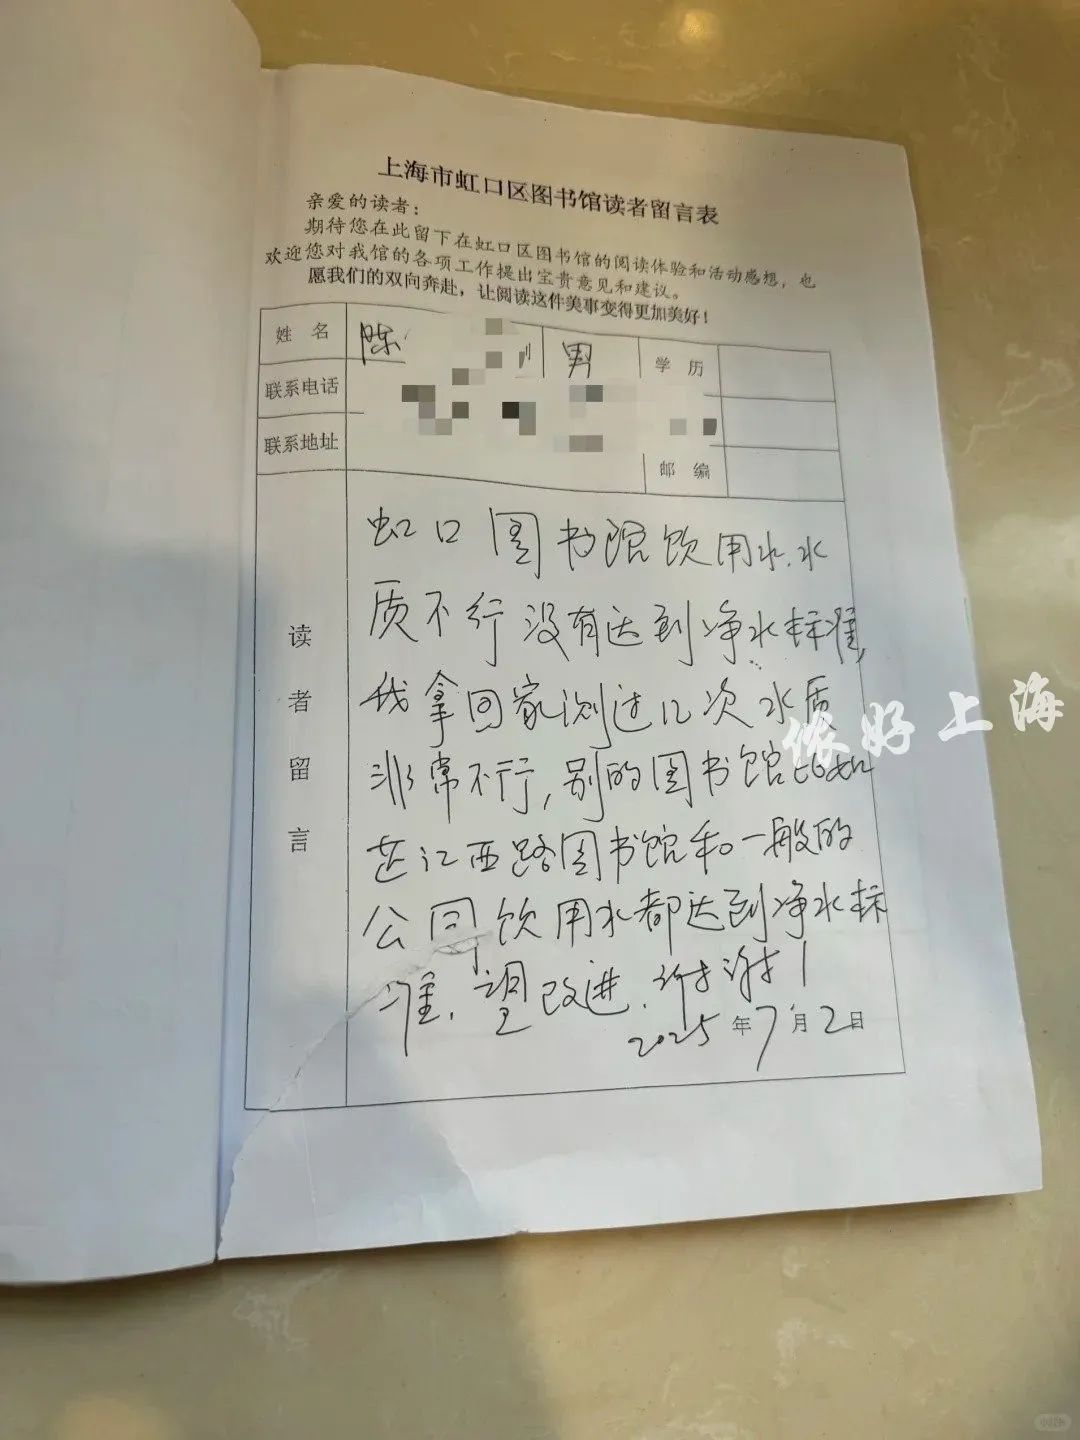 上海市虹口区图书馆读者留言表
亲爱的读者：
期待您在此留下在虹口区图书馆的阅读体验和活动感想，也
欢迎您对我馆的各项工作提出宝贵意见和建议。
愿我们的双向奔赴，让阅读这件美事变得更加美好！
姓 名 陈 别 男 学 历
联系电话
联系地址 邮 编
读者留言
虹口图书馆饮用水.水
质不行没有达到净水标准,
我拿回家测过几次水质
非常不行,别的图书馆比如
芷江西路图书馆和一般的
公司饮用水都达到净水标
准.望改进.谢谢!
2025年7月2日
侬好上海